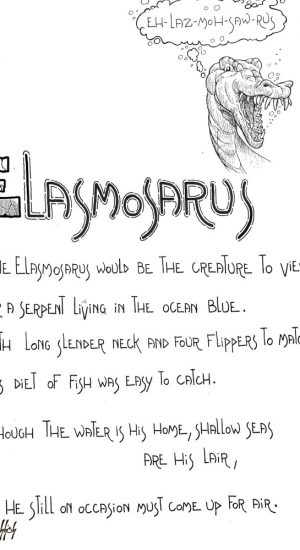 EH-LAZ-MOH-SAW-RUS
ELASMOSARUS
E ELASMOSARUS WOULD BE THE CREATURE TO VIE
A SERPENT LIVING IN THE OCEAN BLUE.
TH LONG SLENDER NECK AND FOUR FLIPPERS TO MATC
S DIET OF FISH WAS EASY TO CATCH.
HOUGH THE WATER IS HIS HOME, SHALLOW SEAS
ARE HIS LAIR,
HE STILL ON OCCASION MUST COME UP FOR AIR.